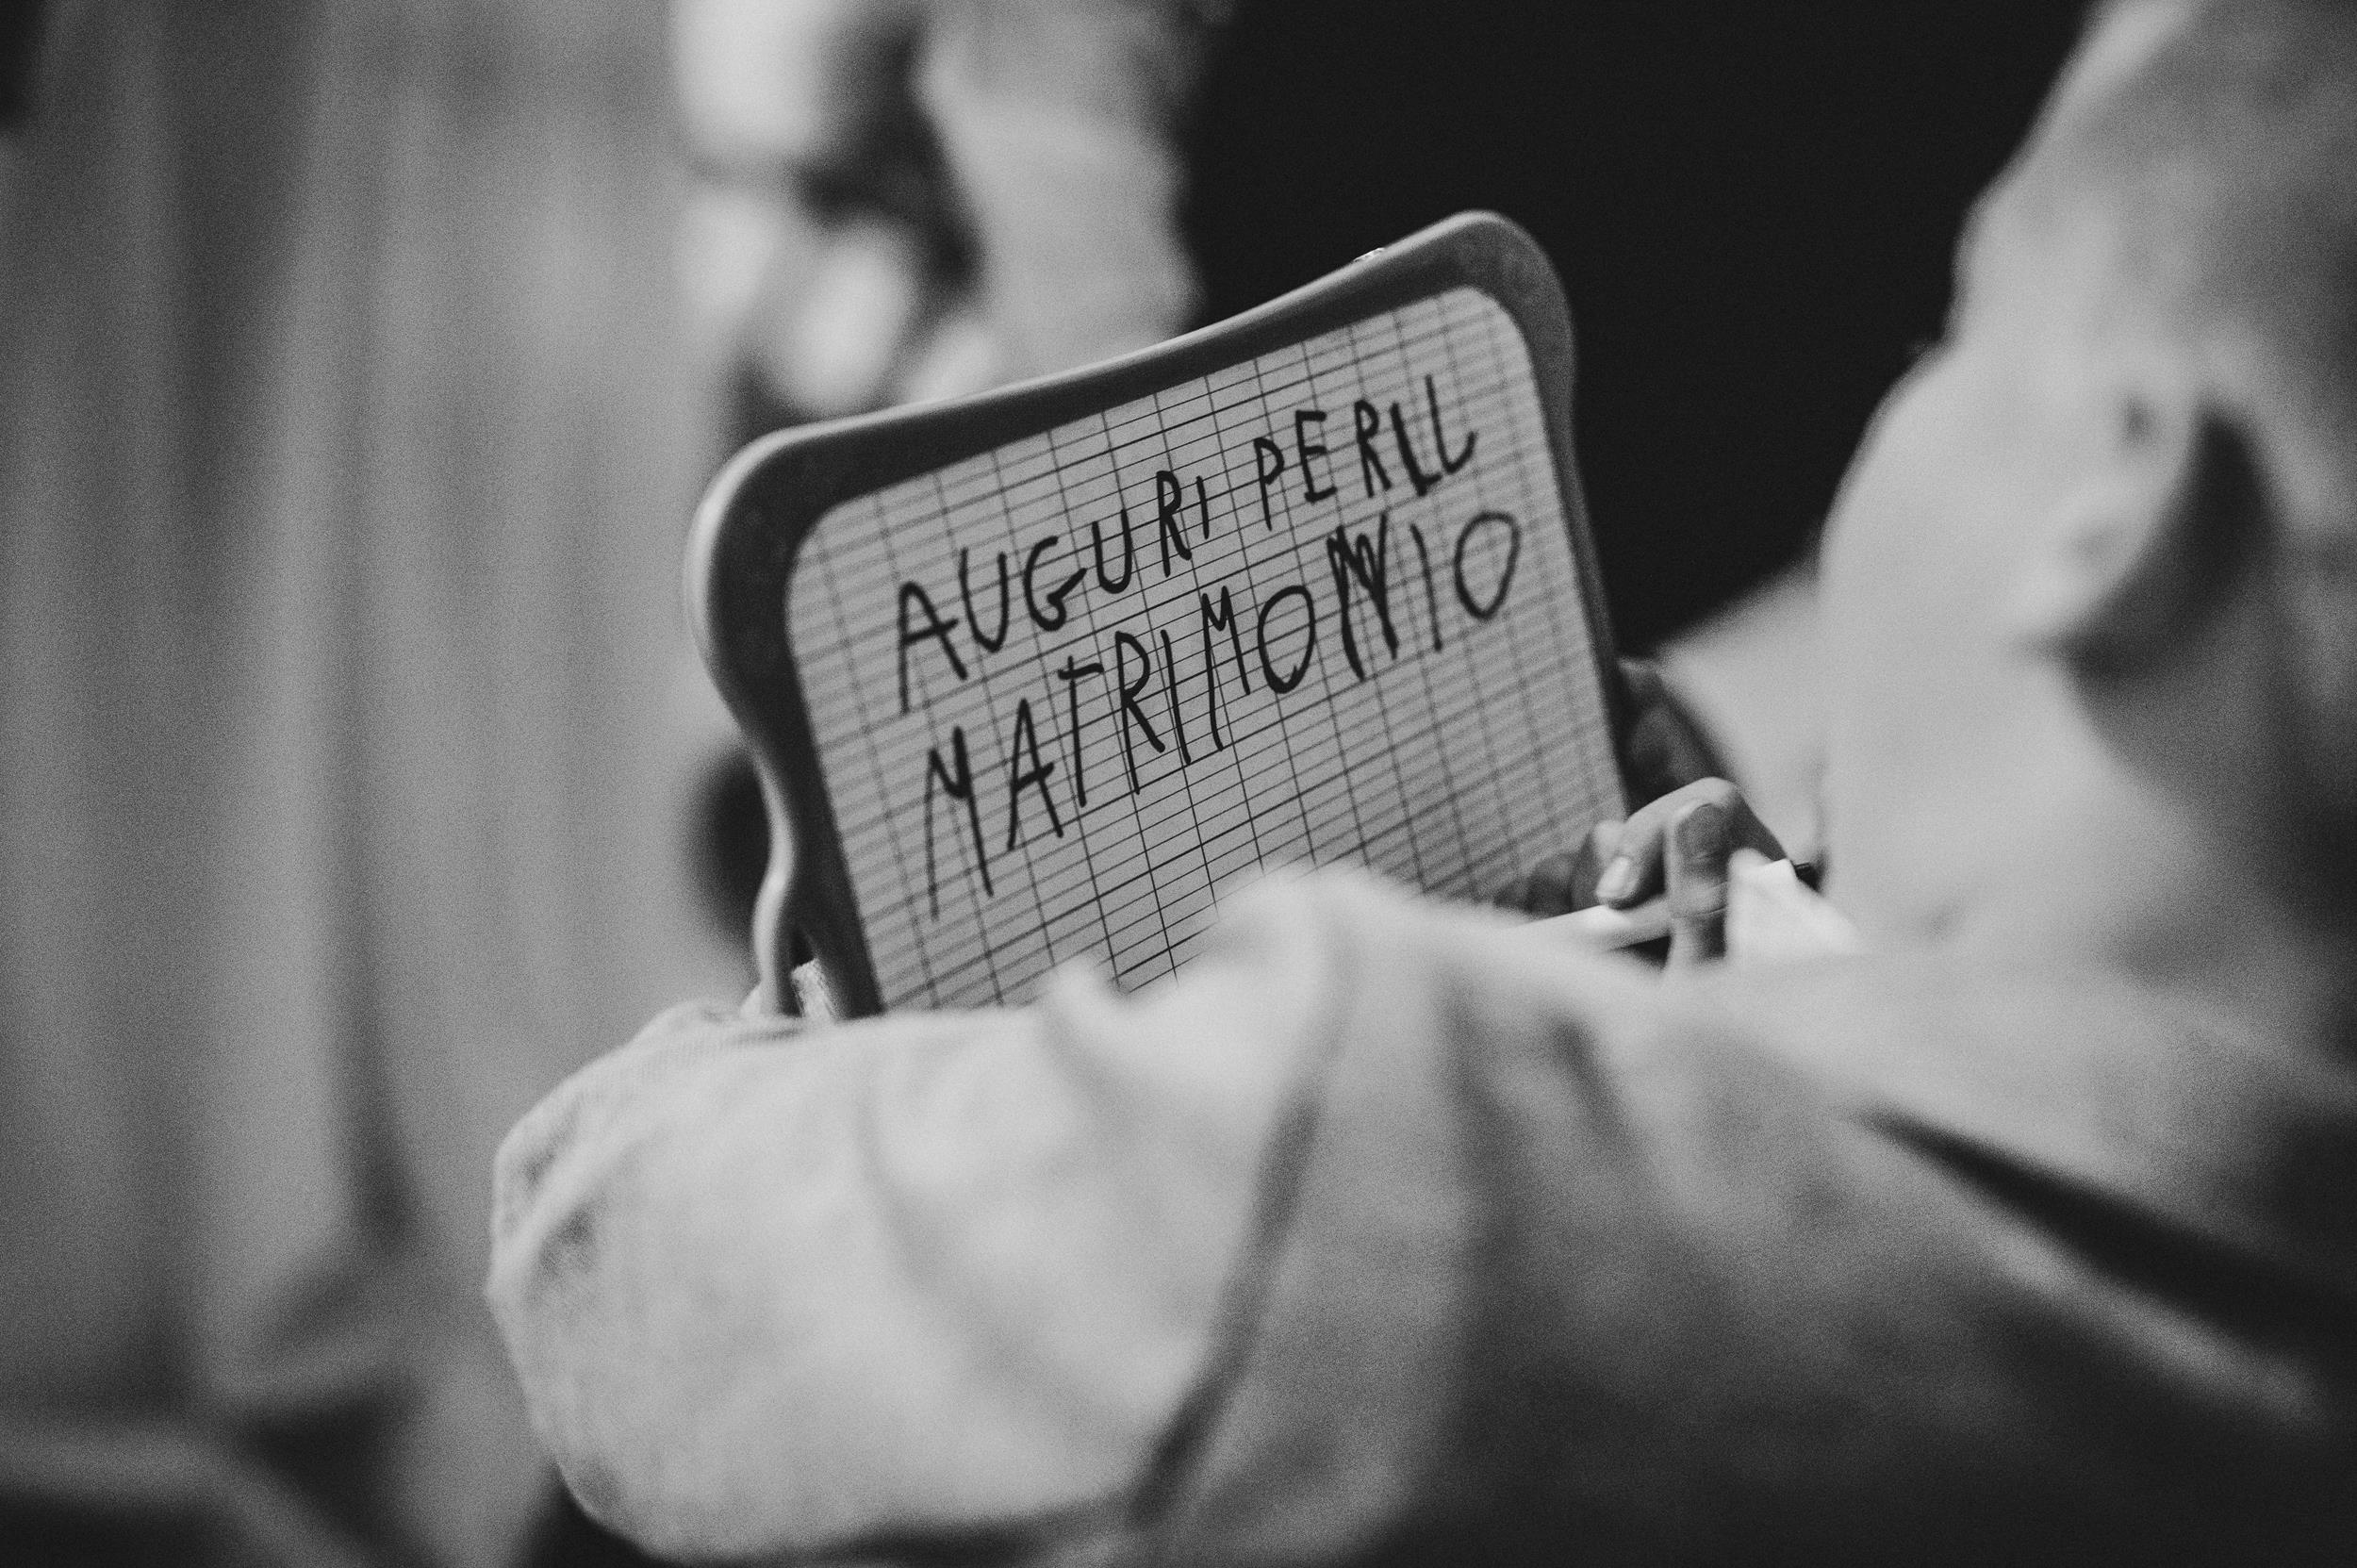 AUGURI PER IL
MATRIMONIO